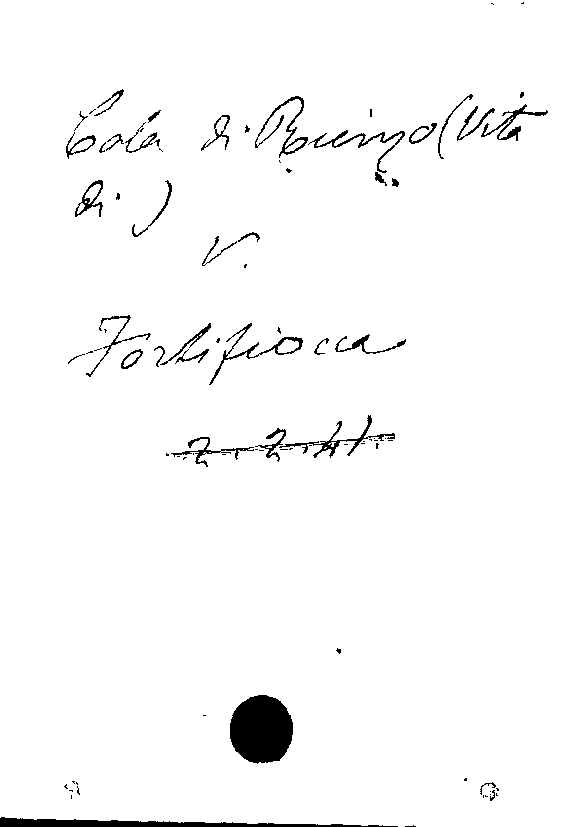 Cola di Rienzo (Vita
di)
V.
Fortifiocca
2.2.41.